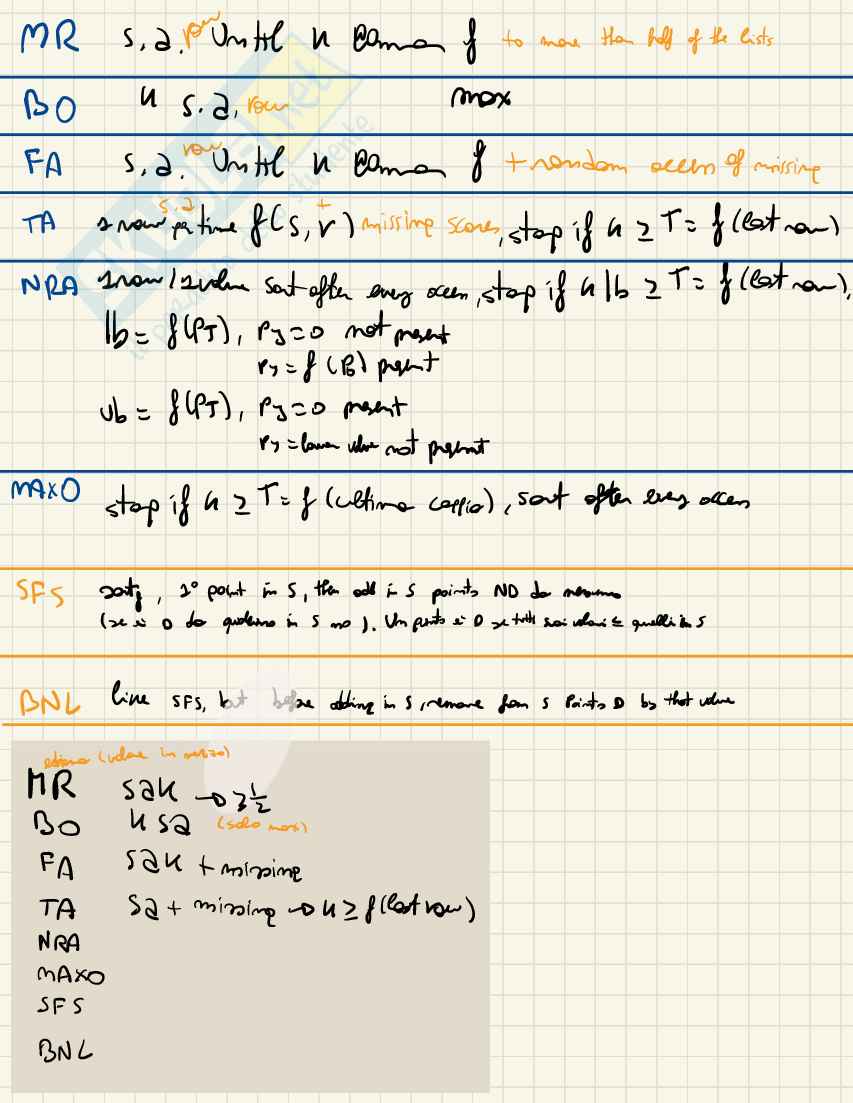 MR s.a. row Until k common f to more than half of the lists
BO k s.a. row max
FA s.a. row Until k common f + random access of missing
TA 1 row per time s.a f(s, r) + missing scores, stop if k ≥ T = f(last row)
NRA 1 row / 1 value sort after every access, stop if k lb ≥ T = f(last row),
lb = f(PJ), PJ=0 not present
PJ = f(PJ) present
ub = f(PJ), PJ=0 present
PJ = lower value not present
MAXO stop if k ≥ T = f(ultima coppia), sort after every access
SFS sort, 1° point in S, then add in S points ND da nessuno
(se è D da qualcuno in S no). Un punto è D se tutti suoi valori ≤ quelli in S
BNL like SFS, but before adding in S, remove from S Points D by that value
(valore in mezzo)
MR sak → ≥ 1/2
BO k sa (solo max)
FA sak + missing
TA sa + missing → k ≥ f(last row)
NRA
MAXO
SFS
BNL